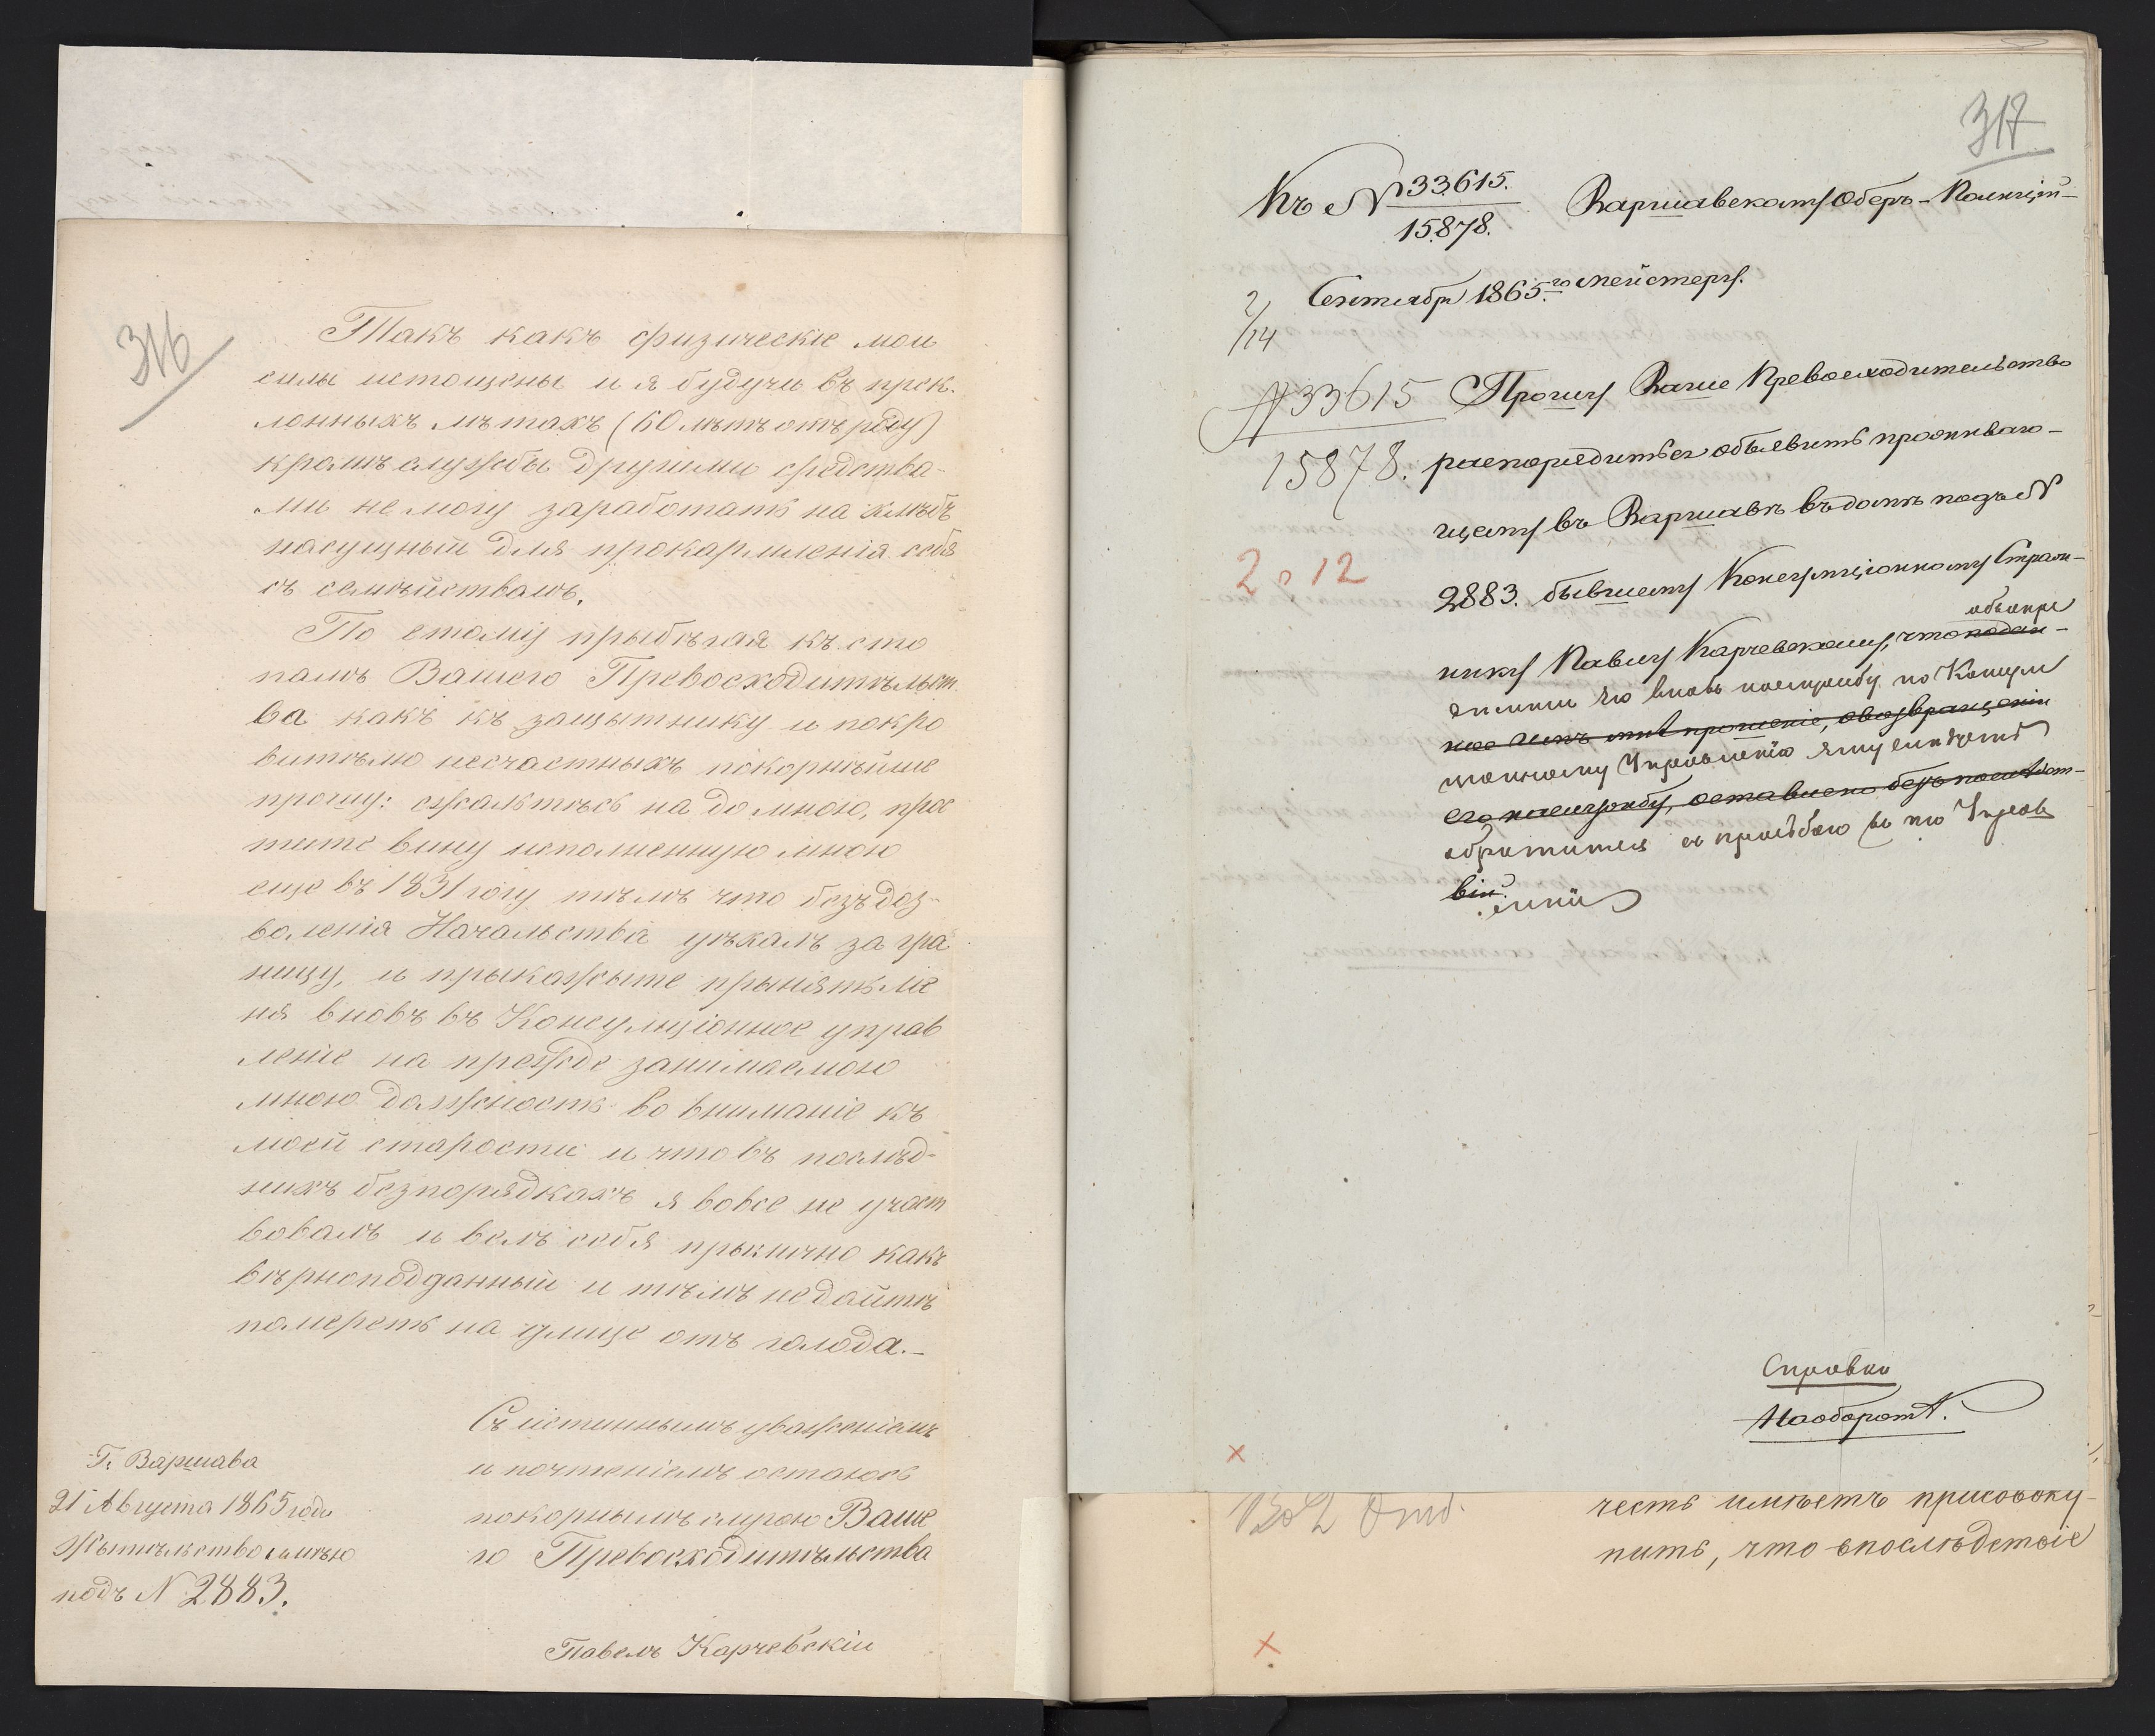 316
Такъ какъ физическіе мои
силы истощены и я будучи въ прек-
лонныхъ лѣтахъ (60 лѣтъ отъ роду)
кромѣ службы другими средства-
ми не могу заработать на хлѣбъ
насущный для прокармленія себя
съ семѣйствамъ.
По етому прыбѣгая къ сто
памъ Вашего Превосходитѣльст
ва какъ къ защытнику и покро
витѣлю несчастныхъ покорнѣйше
прошу: сжальтѣсь на до мною, прос
тите вину исполненную мною
еще въ 1831 году тѣмъ что безъ доз-
воленія Начальства уѣхалъ за гра
ницу, и прыкажыте прынять ме
ня вновъ въ Консумціонное управ
леніе на прежде занимаемою
мною должность во вниманіе къ
моей старости и что въ послѣд-
нихъ безпорядкахъ я вовсе не участ
вовалъ и велъ себя прылично какъ
вѣрноподданный и тѣмъ недайтѣ
помереть на улице отъ голода.-
Съ истиннымъ уваженіемъ
и почтеніемъ остаюсь
покорнымъ слугою Ваше
го Превосходитѣльства
Павелъ Карчевскіи
Г. Варшава
21 Августа 1865 года
Жытѣльство имѣю
подъ N 2883.
317
Къ N 33615.
15878.
Варшавскому Оберъ-Полиціи-
2/14 Сентября 1865.го
мейстеру.
N 33615
15878.
Прошу Ваше Превосходительство
распорядиться объявить проживаю-
щему въ Варшавѣ въ домѣ подъ N
2 о 12
2883. бывшему Консумціонному Страж-
нику Павлу Карчевскому, что подан-
объ опре
дѣленіи его вновь на службу по Консум
ное имъ мнѣ прошеніе, о возвращеніи
ціонному Управленію ему слѣдуетъ
его на службу, оставлено безъ послѣдст-
обратиться съ просьбою въ то Управ
вій.
леніе
Справка
На оборотѣ.
честь имѣетъ присовоку-
пить, что впослѣдствіе